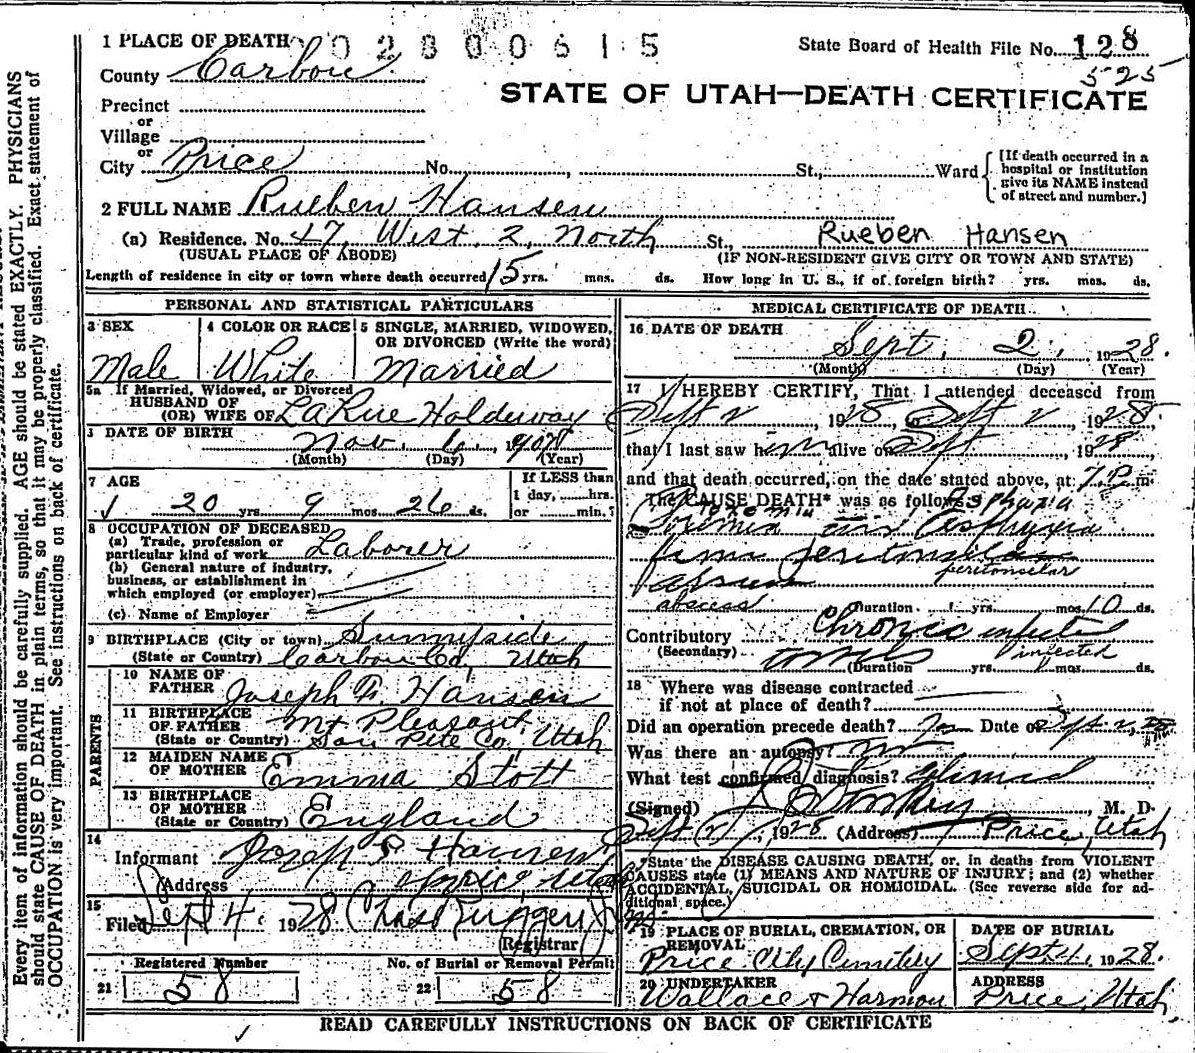 1 PLACE OF DEATH 0 2 8 0 0 6 1 5
State Board of Health File No. 128
525
County Carbon
STATE OF UTAH—DEATH CERTIFICATE
Precinct
or
Village
or
City Price No. , St., Ward
[If death occurred in a
hospital or institution
give its NAME instead
of street and number.]
2 FULL NAME Rueben Hansen
(a) Residence. No. 47, West 2, North St., Rueben Hansen
(USUAL PLACE OF ABODE) (IF NON-RESIDENT GIVE CITY OR TOWN AND STATE)
Length of residence in city or town where death occurred 15 yrs. mos. ds. How long in U. S., if of foreign birth? yrs. mos. ds.
PERSONAL AND STATISTICAL PARTICULARS
3 SEX
Male
4 COLOR OR RACE
White
5 SINGLE, MARRIED, WIDOWED,
OR DIVORCED (Write the word)
Married
5a If Married, Widowed, or Divorced
HUSBAND OF
(OR) WIFE OF LaRue Holdaway
DATE OF BIRTH Nov. 6,
(Month) (Day) (Year)
7 AGE
20 yrs. 9 mos. 26 ds.
If LESS than
1 day, hrs.
or min.?
8 OCCUPATION OF DECEASED
(a) Trade, profession or
particular kind of work Laborer
(b) General nature of industry,
business, or establishment in
which employed (or employer)
(c) Name of Employer
9 BIRTHPLACE (City or town) Sunnyside
(State or Country) Carbon Co, Utah
PARENTS
10 NAME OF
FATHER Joseph F. Hansen
11 BIRTHPLACE
OF FATHER Mt Pleasant,
(State or Country) San Pete Co, Utah
12 MAIDEN NAME
OF MOTHER Emma Stott
13 BIRTHPLACE
OF MOTHER
(State or Country) England
14
Informant Joseph F Hansen
Address Price, Utah
15
Filed Sept 4. 1928
Registrar
Registered Number
21 58
No. of Burial or Removal Permit
22 58
MEDICAL CERTIFICATE OF DEATH
16 DATE OF DEATH
Sept. 2, 1928.
(Month) (Day) (Year)
17 I HEREBY CERTIFY, That I attended deceased from
Sept 2, 1928, to Sept 2, 1928
that I last saw him alive on Sept 1928
and that death occurred, on the date stated above, at 7 P. m.
The CAUSE DEATH* was as follows:
Toxemia and Asphyxia
from peritonsilar
peritonselar
abscess
abscess Duration yrs. mos. 10 ds.
Contributory Chronic infected
(Secondary) infected
tonsils (Duration yrs. mos. ds.
18 Where was disease contracted
if not at place of death?
Did an operation precede death? Date of Sept 2, 28
Was there an autopsy? no
What test confirmed diagnosis? Clinical
(Signed) , M. D.
Sept , 1928 (Address) Price, Utah
*State the DISEASE CAUSING DEATH, or, in deaths from VIOLENT
CAUSES state (1) MEANS AND NATURE OF INJURY; and (2) whether
ACCIDENTAL, SUICIDAL OR HOMICIDAL. (See reverse side for ad-
ditional space.)
19 PLACE OF BURIAL, CREMATION, OR
REMOVAL
Price City Cemetery
DATE OF BURIAL
Sept 4, 1928.
20 UNDERTAKER
Wallace & Harmon
ADDRESS
Price, Utah
READ CAREFULLY INSTRUCTIONS ON BACK OF CERTIFICATE
Every item of information should be carefully supplied. AGE should be stated EXACTLY. PHYSICIANS
should state CAUSE OF DEATH in plain terms, so that it may be properly classified. Exact statement of
OCCUPATION is very important. See instructions on back of certificate.